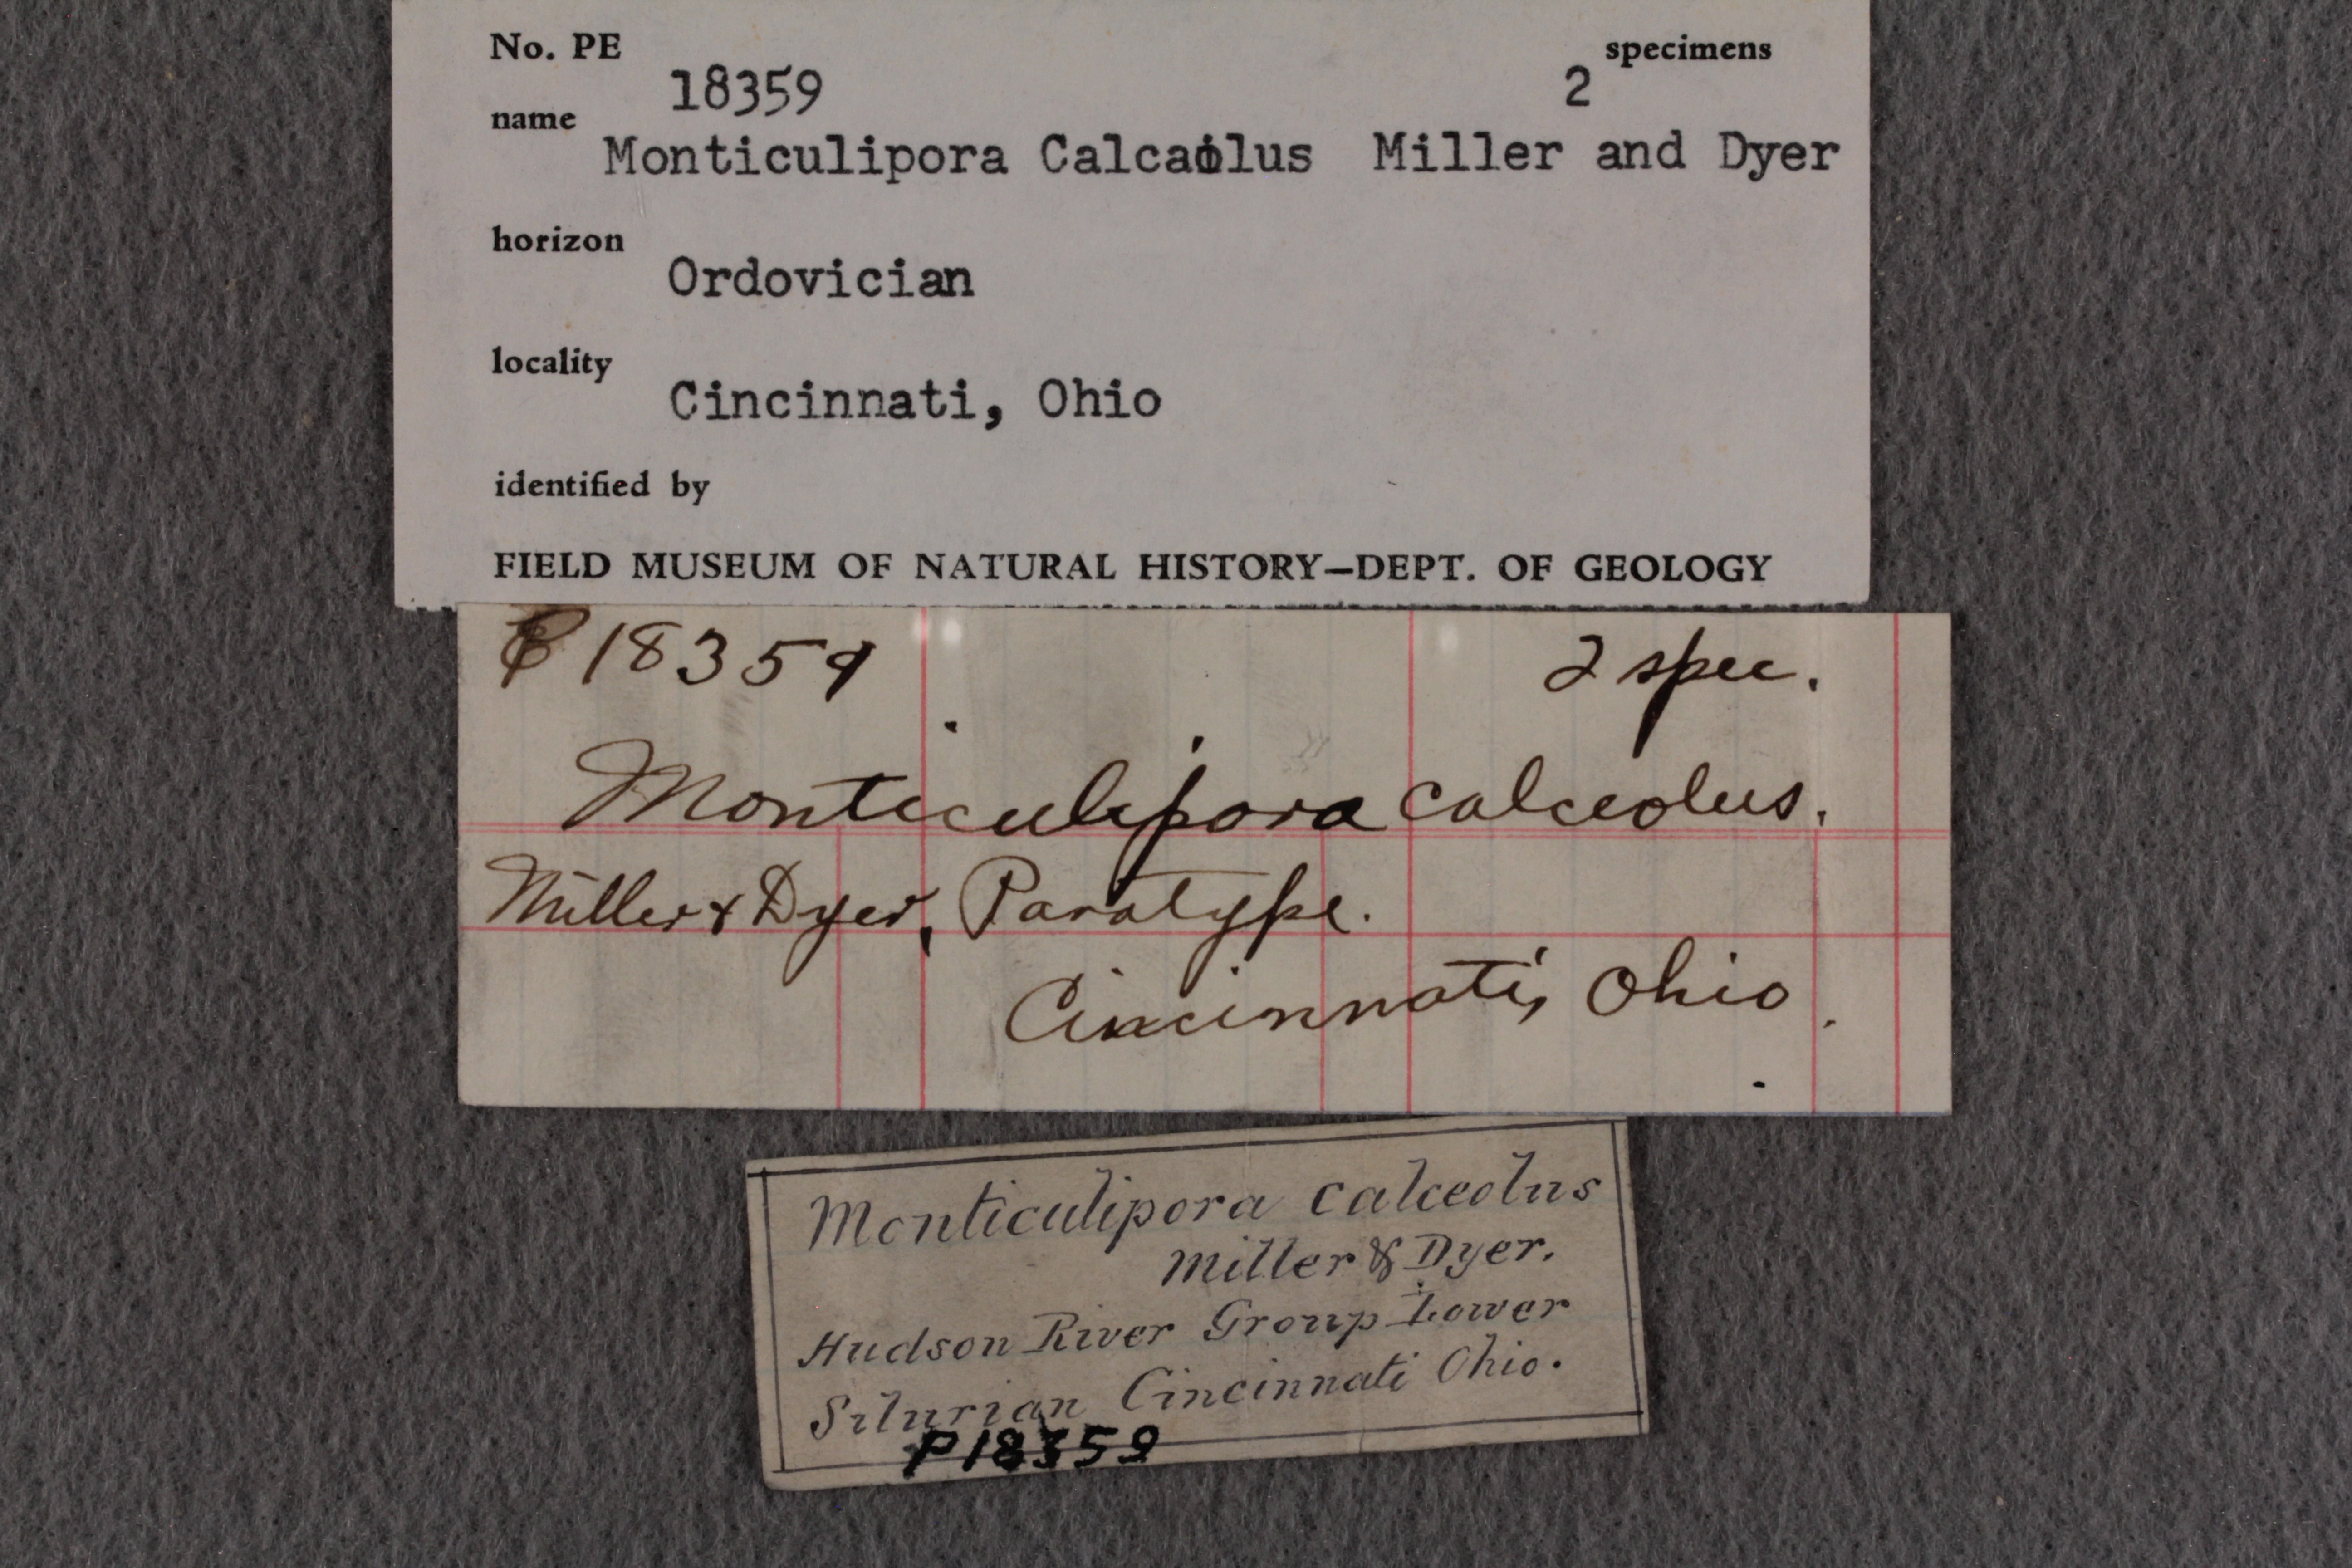 No. PE 18359 2 specimens
name Monticulipora Calcaolus Miller and Dyer
horizon Ordovician
locality Cincinnati, Ohio
identified by
FIELD MUSEUM OF NATURAL HISTORY—DEPT. OF GEOLOGY
P 18359 2 spec.
Monticulipora calceolus.
Miller & Dyer, Paratype.
Cincinnati, Ohio.
Monticulipora calceolus
Miller & Dyer.
Hudson River Group Lower
Silurian Cincinnati Ohio.
P18359